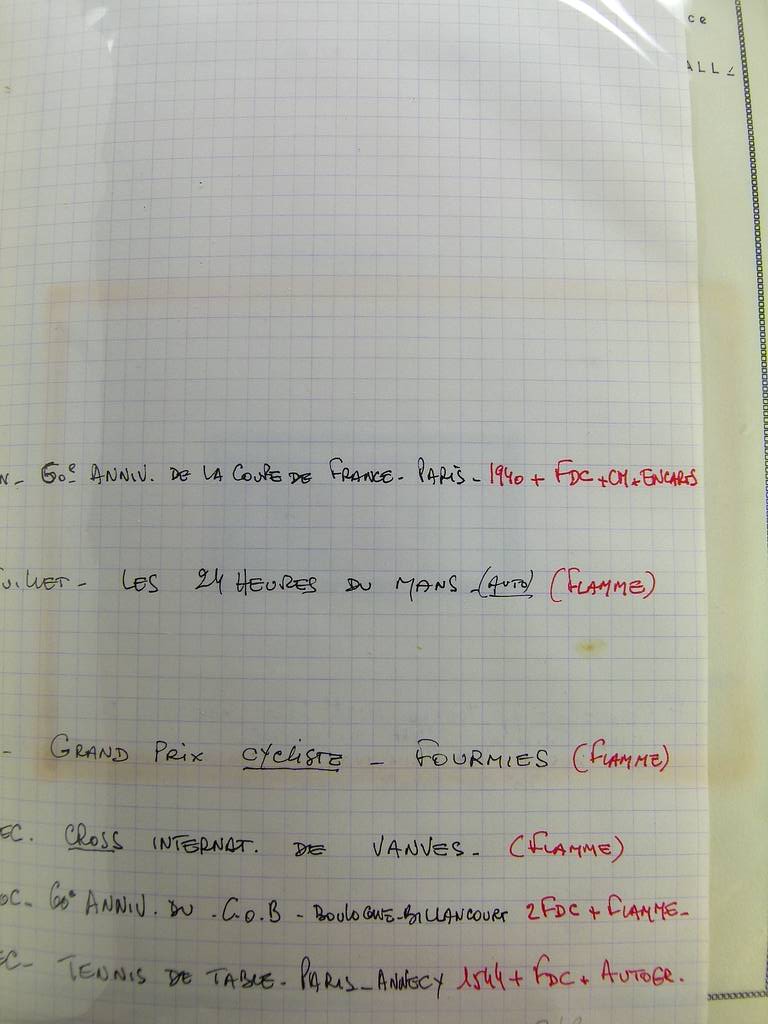 ce
ALL
N- 60e ANNIV. DE LA COUPE DE FRANCE- PARIS- 1940 + FDC+CM+ENCARTS
JUILLET- LES 24 HEURES DU MANS -(AUTO) (FLAMME)
- GRAND PRIX CYCLISTE - FOURMIES (FLAMME)
EC. CROSS INTERNAT. DE VANVES- (FLAMME)
60e ANNIV. DU -C.O.B - BOULOGNE-BILLANCOURT 2FDC + FLAMME-
EC- TENNIS DE TABLE- PARIS-ANNECY 1544+ FDC + AUTOGR.